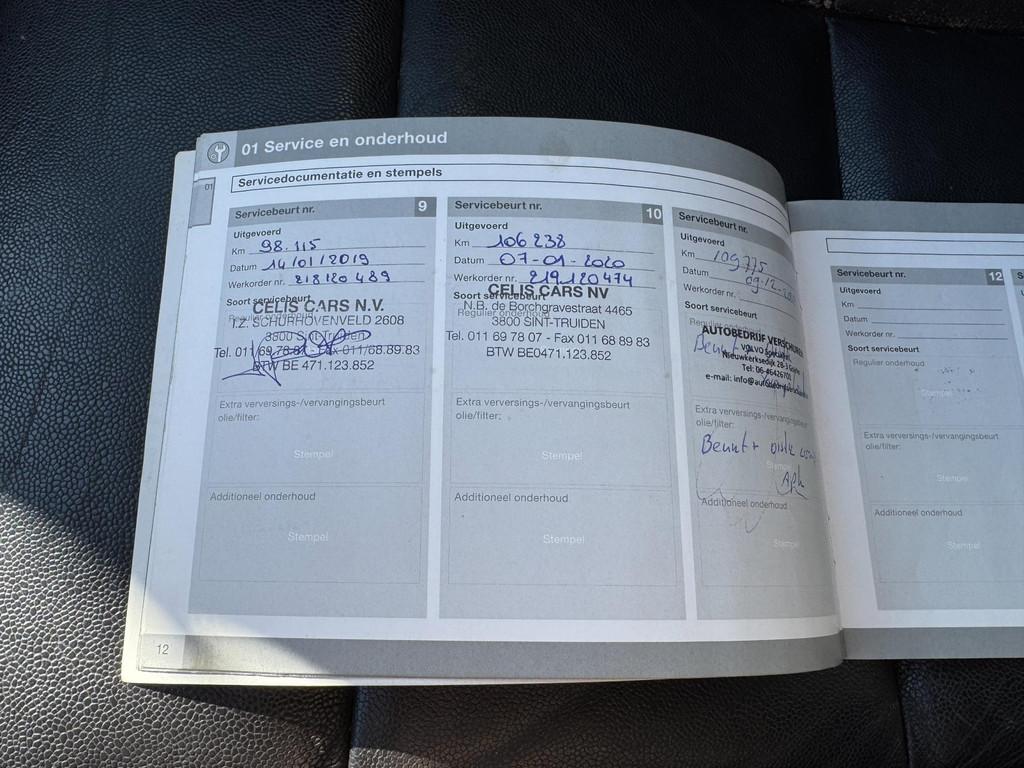 01 Service en onderhoud
01
Servicedocumentatie en stempels
Servicebeurt nr. 9
Uitgevoerd
Km 98.115
Datum 14/01/2019
Werkorder nr. 218120489
Soort servicebeurt
Regulier onderhoud
CELIS CARS N.V.
I.Z. SCHURHOVENVELD 2608
3800 Sint-Truiden
Tel. 011/69.78.07 Fax 011/68.89.83
BTW BE 471.123.852
Extra verversings-/vervangingsbeurt
olie/filter:
Stempel
Additioneel onderhoud
Stempel
Servicebeurt nr. 10
Uitgevoerd
Km 106238
Datum 07-01-2020
Werkorder nr. 219120474
Soort servicebeurt
Regulier onderhoud
CELIS CARS NV
N.B. de Borchgravestraat 4465
3800 SINT-TRUIDEN
Tel. 011 69 78 07 - Fax 011 68 89 83
BTW BE0471.123.852
Extra verversings-/vervangingsbeurt
olie/filter:
Stempel
Additioneel onderhoud
Stempel
Servicebeurt nr.
Uitgevoerd
Km 109775
Datum 09-12-
Werkorder nr.
Soort servicebeurt
Regulier
AUTOBEDRIJF
VOLVO specialist
Nieuwerksedijk 28-3
Tel: 06-46426701
e-mail: info@
Extra verversings-/vervangingsbeurt
olie/filter:
Beurt +
Stempel
APK
Additioneel onderhoud
Stempel
Servicebeurt nr. 12
Uitgevoerd
Km
Datum
Werkorder nr.
Soort servicebeurt
Regulier onderhoud
Stempel
Extra verversings-/vervangingsbeurt
olie/filter:
Stempel
Additioneel onderhoud
Stempel
12